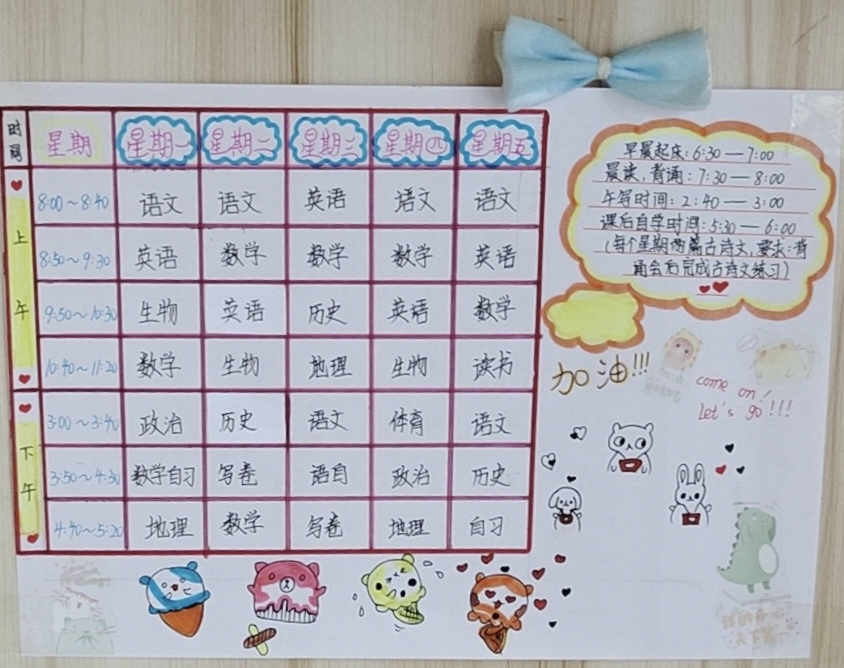 时间 星期 星期一 星期二 星期三 星期四 星期五
上午
8:00~8:40 语文 语文 英语 语文 语文
8:50~9:30 英语 数学 数学 数学 英语
9:50~10:30 生物 英语 历史 英语 数学
10:40~11:20 数学 生物 地理 生物 读书
下午
3:00~3:40 政治 历史 语文 体育 语文
3:50~4:30 数学自习 写卷 语自 政治 历史
4:40~5:20 地理 数学 写卷 地理 自习
早晨起床:6:30—7:00
晨读,背诵:7:30—8:00
午写时间:2:40—3:00
课后自学时间:5:30—6:00
(每个星期两篇古诗文,要求:背
诵会后完成古诗文练习)
加油!!!
come on!
Let's go!!!